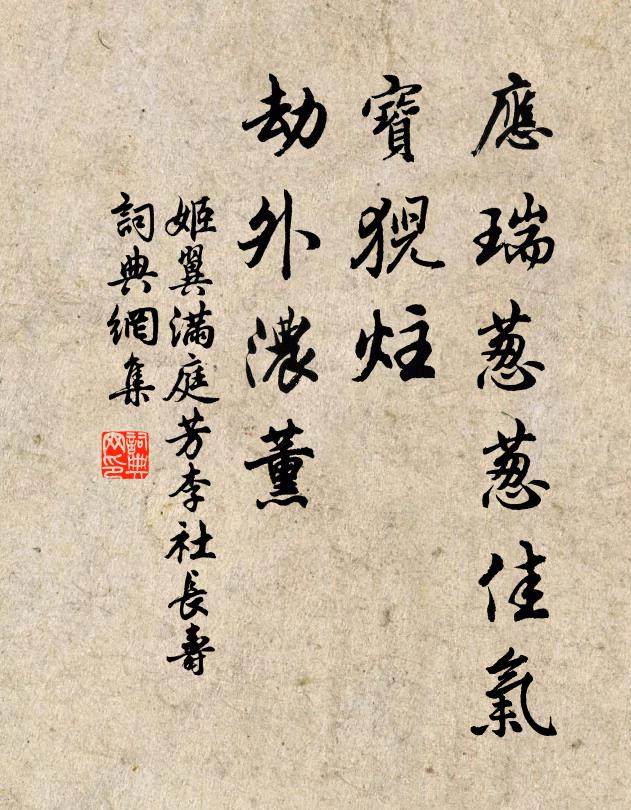 應瑞葱葱佳氣
寶猊炷
劫外濃薰
姬翼滿庭芳李社長壽
詞典網集
詞典
网印